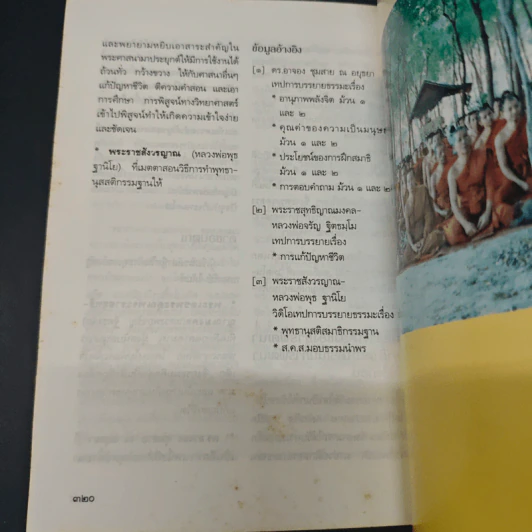 และพยายามหยิบเอาสาระสำคัญใน
พระศาสนามาประยุกต์ให้มีการใช้งานได้
ถ้วนทั่ว กว้างขวาง ให้กับศาสนาอื่นๆ
แก้ปัญหาชีวิต ตีความคำสอน และเอา
การศึกษา การพิสูจน์ทางวิทยาศาสตร์
เข้าไปพิสูจน์ทำให้เกิดความเข้าใจง่าย
และชัดเจน
* พระราชสังวรญาณ (หลวงพ่อพุธ
ฐานิโย) ที่เมตตาสอนวิธีการทำพุทธา-
นุสสติกรรมฐานให้
๓๒๐
ข้อมูลอ้างอิง
[๑] ดร.อาจอง ชุมสาย ณ อยุธยา
เทปการบรรยายเรื่อง
* อานุภาพพลังจิต ม้วน ๑
และ ๒
* คุณค่าของความเป็นมนุษย์
ม้วน ๑ และ ๒
* ประโยชน์ของการฝึกสมาธิ
ม้วน ๑ และ ๒
* การตอบคำถาม ม้วน ๑ และ ๒
[๒] พระราชสุทธิญาณมงคล-
หลวงพ่อจรัญ ฐิตธมฺโม
เทปการบรรยายเรื่อง
* การแก้ปัญหาชีวิต
[๓] พระราชสังวรญาณ-
หลวงพ่อพุธ ฐานิโย
วิดิโอเทปการบรรยายธรรมะเรื่อง
* พุทธานุสติสมาธิกรรมฐาน
* ส.ค.ส.มอบธรรมนำพร